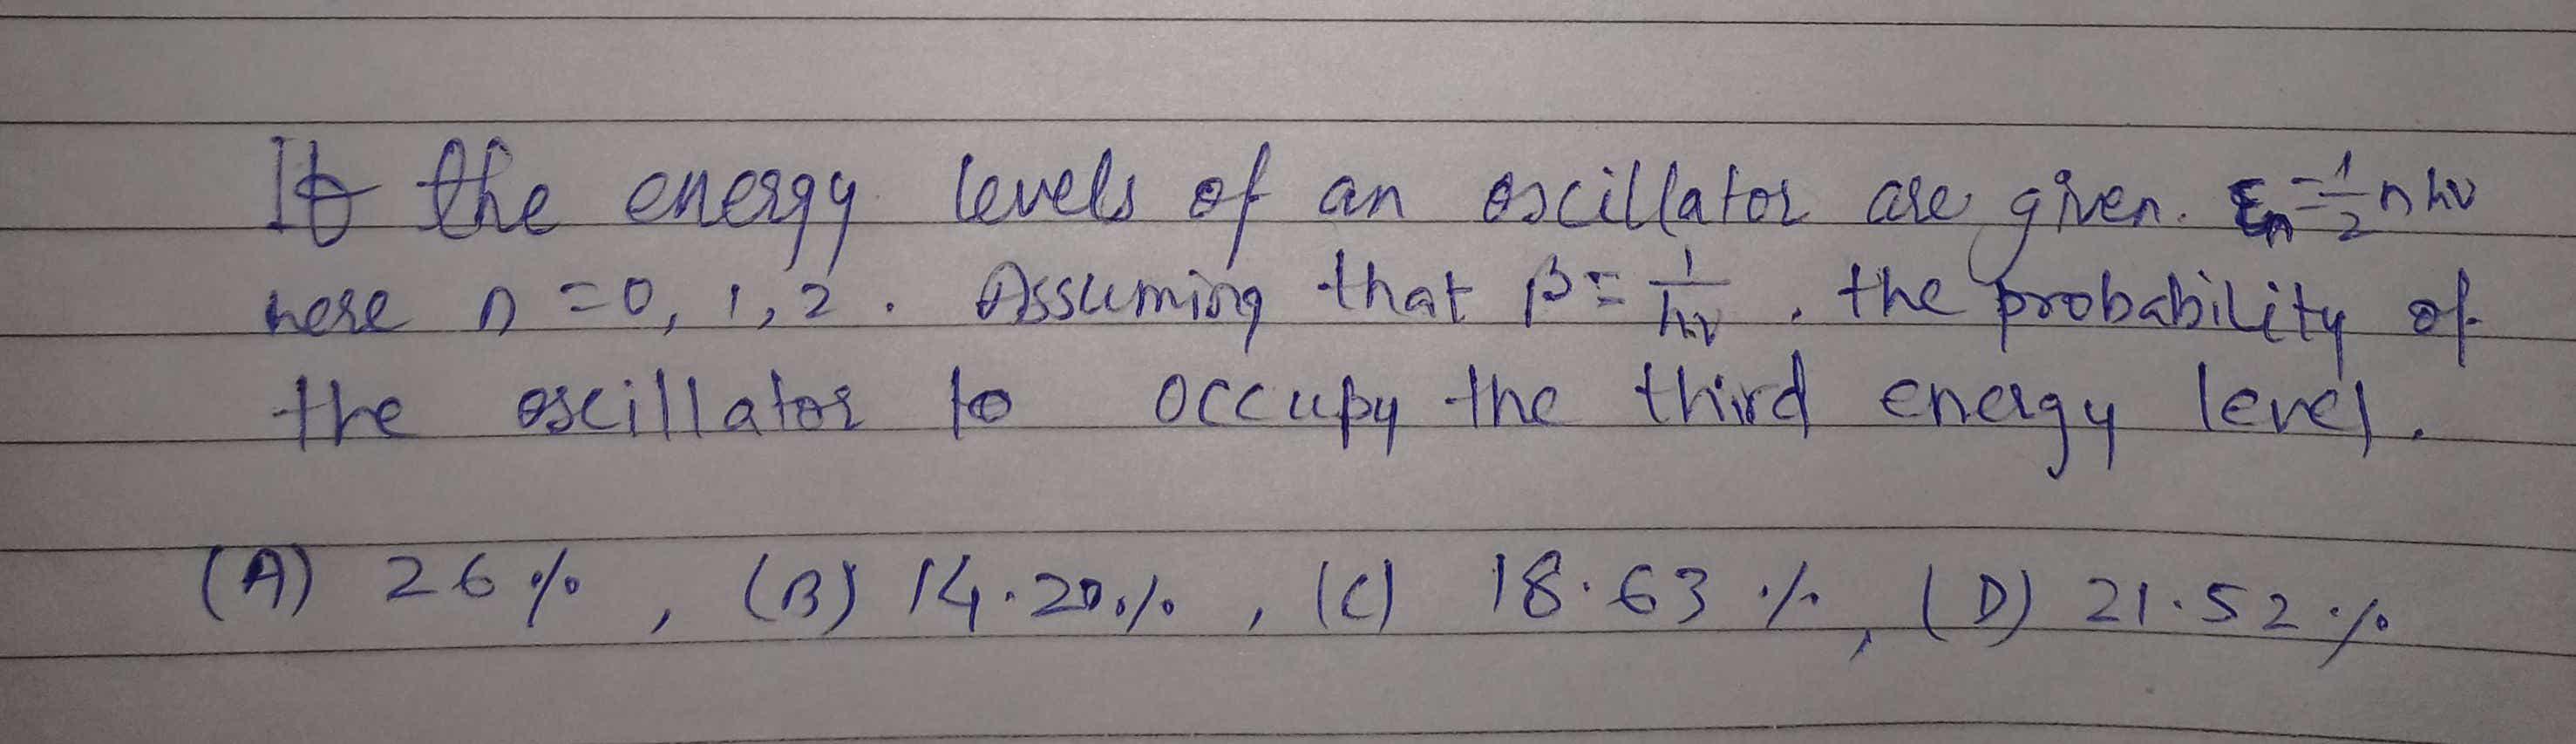 If the energy levels of an oscillator are given. εn = 1/2 nhν
here n = 0, 1, 2. Assuming that β = 1/hν, the probability of
the oscillator to occupy the third energy level.
(A) 26%, (B) 14.20%, (C) 18.63%, (D) 21.52%